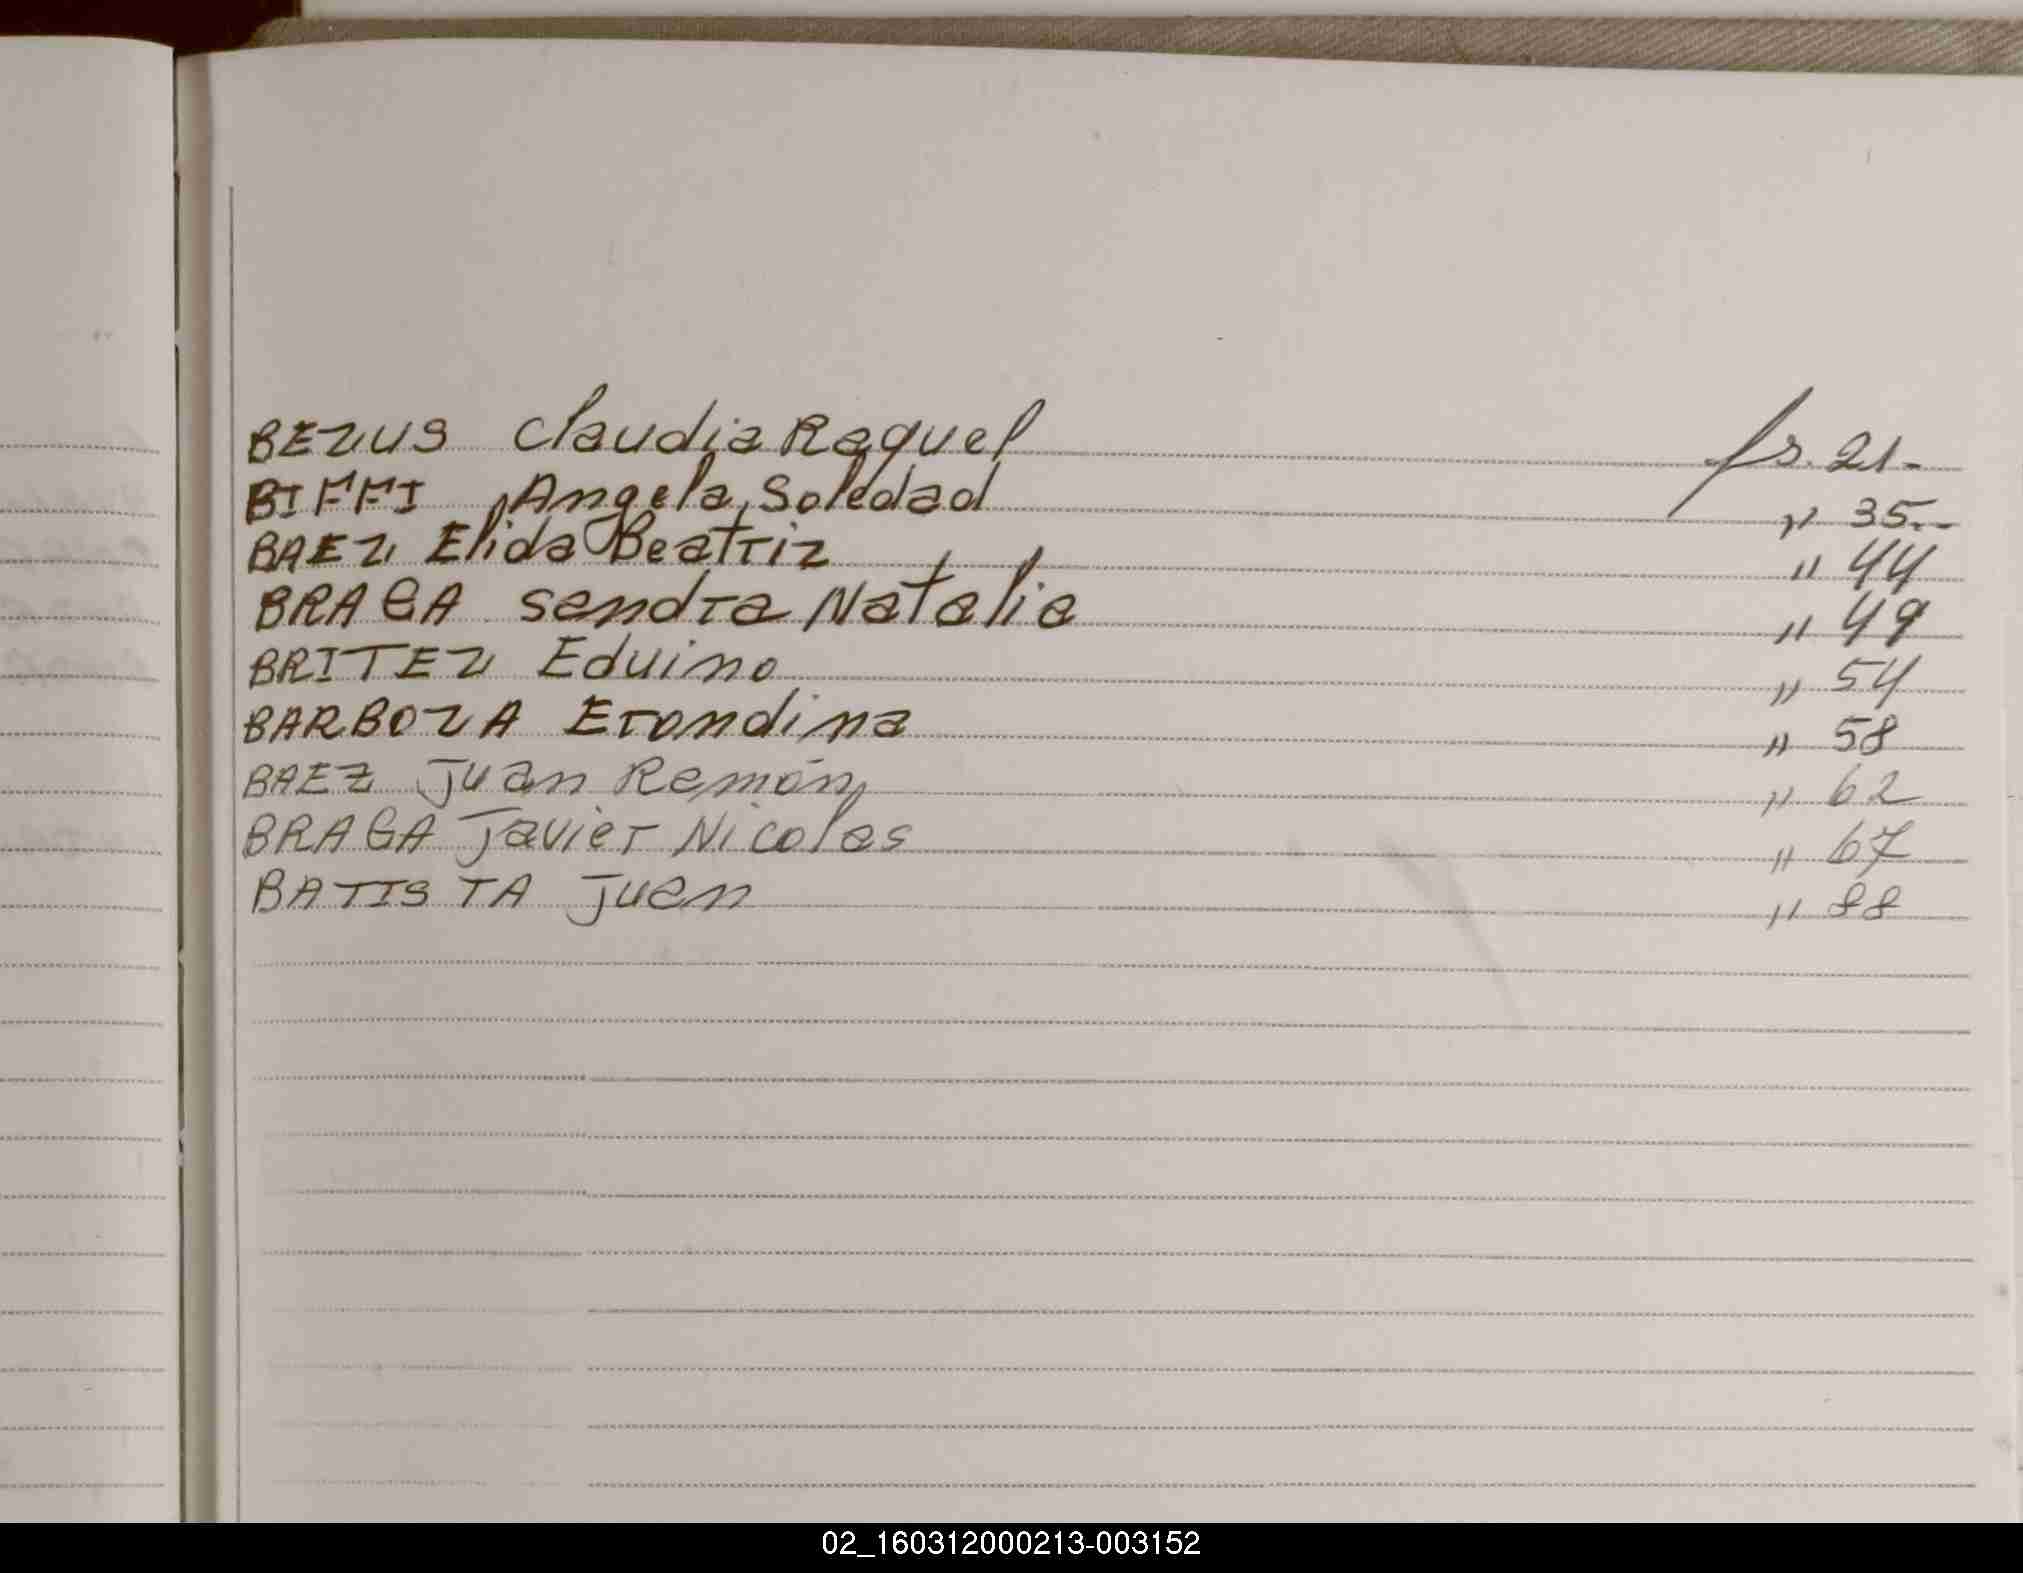 BEZUS Claudia Raquel fs. 21-
BIFFI Angela Soledad " 35.-
BAEZ Elida Beatriz " 44
BRAGA Sandra Natalia " 49
BRITEZ Eduino " 54
BARBOZA Erondina " 58
BAEZ Juan Ramón " 62
BRAGA Javier Nicolas " 67
BATISTA Juan " 88
02_160312000213-003152